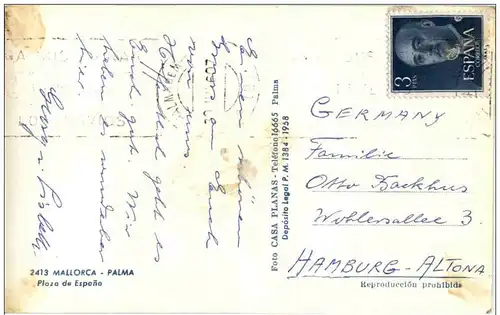 Einen schönen
Gruss an Euch
von uns.
Hoffentlich geht es
Euch gut. Wir
haben es wunderbar
hier.
2413 MALLORCA - PALMA
Plaza de España
Foto CASA PLANAS - Teléfono 16665 Palma
Depósito Legal P. M. 1384 - 1958
3
PTAS
ESPAÑA
CORREOS
GERMANY
Familie
Otto Backhus
Wohlersallee 3.
HAMBURG-ALTONA
Reproducción prohibida